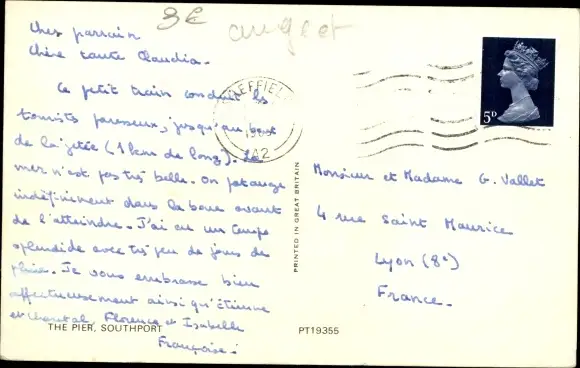 3€
angleet
Cher parrain
Chère tante Claudia.
Ce petit train conduit les
touristes paresseux, jusqu'au bout
de la jetée (1 km de long). La
mer n'est pas très belle. On patauge
indéfiniment dans la boue avant
de l'atteindre. J'ai eu un temps
splendide avec très peu de jours de
pluie. Je vous embrasse bien
affectueusement ainsi qu'Étienne
et Chantal, Florence et Isabelle
Françoise.
THE PIER, SOUTHPORT
PRINTED IN GREAT BRITAIN
PT19355
SHEFFIELD
A2
5D
Monsieur et Madame G. Vallet
4 rue Saint Maurice
Lyon (8e)
France.